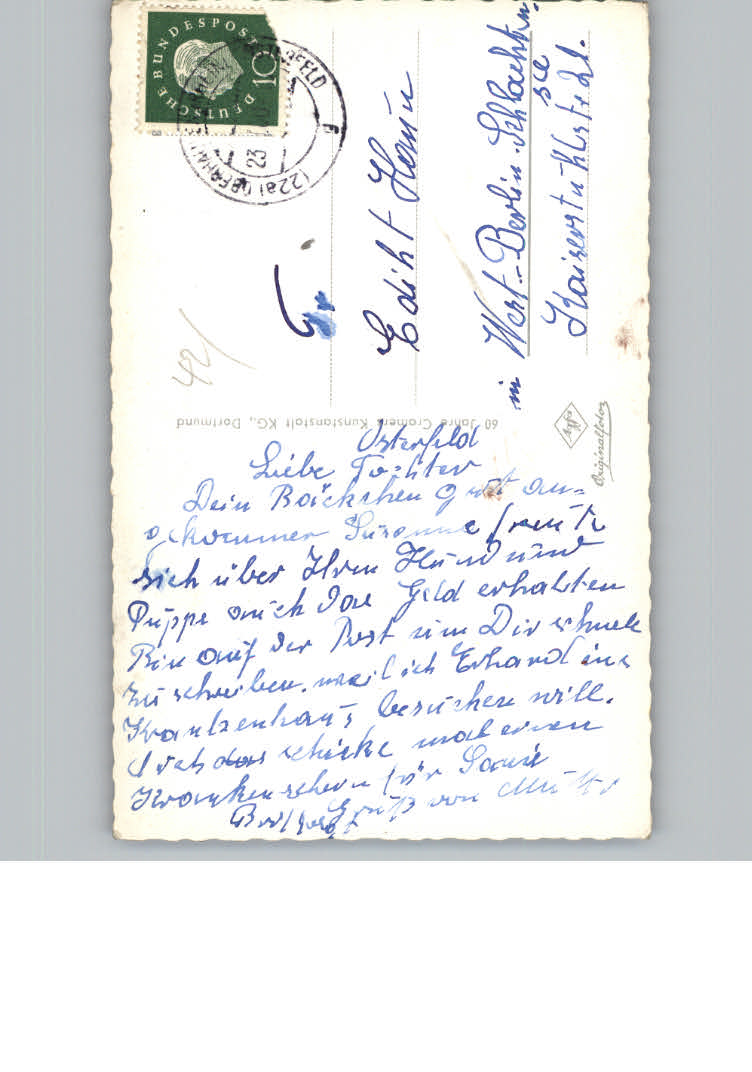 Osterfeld
Liebe Tochter
Dein Päckchen gut an-
gekommen Susanne freute
sich über Ihren Hund und
Puppe auch das Geld erhalten
Bin auf der Post um Dir schnell
zu schreiben, weil ich Erhard ins
Krankenhaus besuchen will.
Ich das schicke mal einen
Krankenschein für
Gruß von Mutter
DEUTSCHE BUNDESPOST
10
(22a) OBERHAUSEN
23
Fr
Ediht
in West-Berlin-Schlachten-
see
Kaiserstuhlstr. 21.
42/
60 Jahre Cramers Kunstanstalt KG., Dortmund
Agfa
Originalfoto